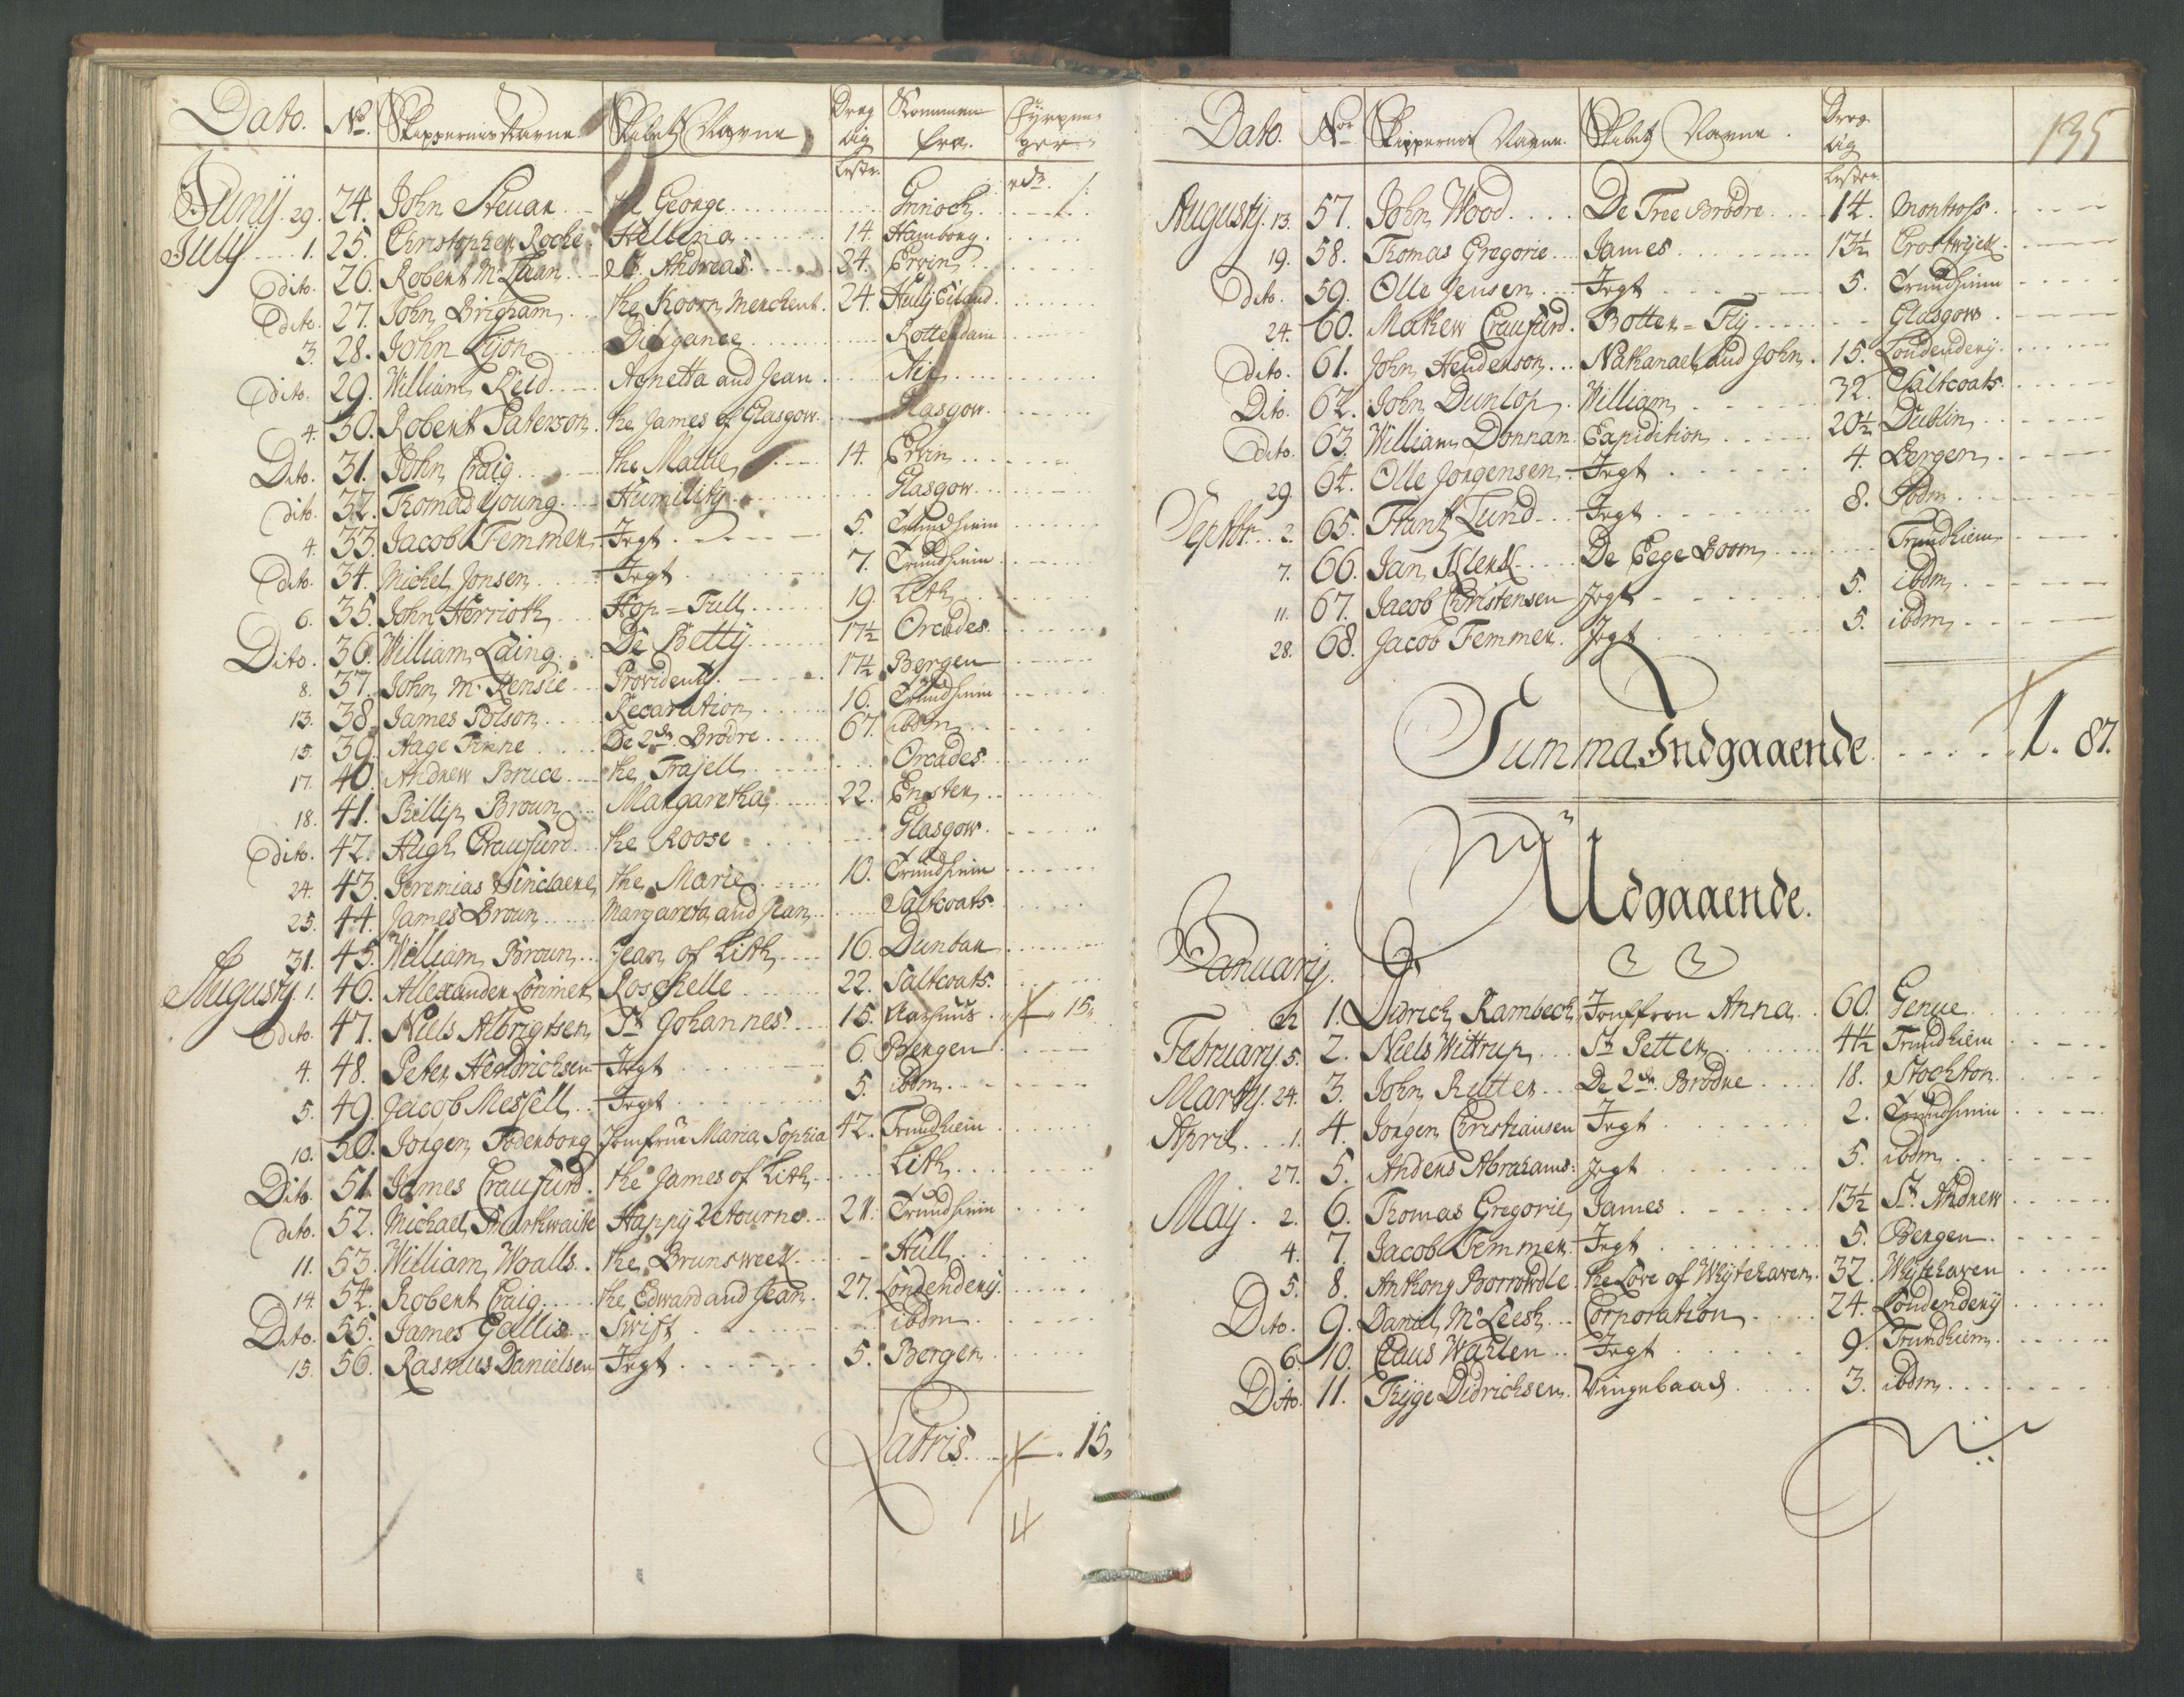 Dato. No. Skippernis Navne. Skibets Navne Dræg tig Kommen fra. Fyrpenger
Lester. rdr.
Junij. 29. 24. John Steuar the George Grinock
Julij 1. 25. Christopher Roche Hellena 14. Hamborg.
dito. 26. Robert Mc Lean St. Andreas. 24. Ervin
dito. 27. John Brigham the Koorn Merchent. 24. Hull j Eiland.
3. 28. John Lyon Diligance Rotterdam
Dito. 29. William Reid Agnetta and Jean Air
4. 30. Robert Paterson. the James of Glasgow. Glasgow.
Dito. 31. John Craig the Mattie 14. Ervin
dito. 32. Thomas Young Humility Glasgow.
4. 33. Jacob Temmer Jegt 5. Trundhiem
Dito. 34. Michel Jonsen Jegt 7. Trundhiem
6. 35. John Herrioth Hop=Full 19. Lith
Dito. 36. William Laing De Betty 17½ Orcades.
8. 37. John Mc Kensie Provident. 17½ Bergen
13. 38. James Polson Recaration 16. Trundhiem
15. 39. Aage Finne De 2de Brödre 67. ibdm
17. 40. Andrew Bruce the Trajell Orcades
18. 41. Phillip Broun Margaretha 22. Enster
Dito. 42. Hugh Craufurd the Roose Glasgow.
24. 43. Jeremias Sinclaere the Marie 10. Trundhiem
25. 44. James Broun Margareta and Jean Saltcoats.
31. 45. William Broun Jean of Lith 16. Dunbar
Augusty. 1. 46. Allexander Lorimer Roschelle 22. Saltcoats.
dito. 47. Niels Albrigtsen St Johannes. 15. Aarhuus 15.
4. 48. Peter Hendrichsen Jegt 6. Bergen
5. 49. Jacob Messell Jegt 5. ibdm
10. 50. Jörgen Födenborg Jomfrue Maria Sophia 42. Trundhiem
Dito. 51. James Craufurd. the James of Lith Lith
dito. 52. Michael Smarthwaite Happy Retourne. 21. Trundhiem
11. 53. William Walls. the Brunsweek Hull
14. 54. Robert Craig the Edward and Jean. 27. Londendery.
Dito. 55. James Gellis Swift ibdm
15. 56. Rasmus Danielsen Jegt 5. Bergen
Latris. 15.
4
135
Dato. Nor Skippernis Navne. Skibets Navne. Dræg tig
Lester.
Augusty. 13. 57. John Wood De Tree Brödre 14. Montross.
19. 58. Thomas Gregorie James 13½ Crostwijck
Dito. 59. Olle Jensen Jegt 5. Trundhiem
24. 60. Mathew Craufurd. Botter=Fly Glasgow.
Dito. 61. John Henderson Nathanael and John. 15. Londendery.
Dito. 62. John Dunlop William 32. Saltcoats.
dito. 63. William Donnan Expidition 20½ Dublin
29. 64. Olle Jorgensen Jegt 4. Bergen
Septbr. 2. 65. Hans Lund Jegt 8. Ibdm
7. 66. Jan Klerk De Eege Boom Trundhiem
11. 67. Jacob Christensen Jegt 5. ibdm
28. 68. Jacob Temmer. Jegt 5. ibdm
Summa Indgaaende. 1. 87.
Udgaaende.
January.
22 1. Didrich Rambech Jomffrou Anna 60. Genue
February. 5. 2. Niels Wittrup St Petter 4½ Trundhiem
Marty. 24. 3. John Rutter De 2de Brödre 18. Stockton.
April 1. 4. Jörgen Christiansen Jegt 2. Trundhiem
27. 5. Anders Abrahams: Jegt 5. ibdm
May. 2. 6. Thomas Gregorie James 13½ St. Andrew
4. 7. Jacob Temmer. Jegt 5. Bergen
5. 8. Anthony Borrowdle the Love of Whytehaven. 32. Whytehaven
Dito. 9. Daniel Mc Leesh Corporation 24. Londendery
6. 10. Claus Wahlen Jegt 9. Trundhiem.
Dito. 11. Thyge Didrichsen. Vingebaad 3. ibdm